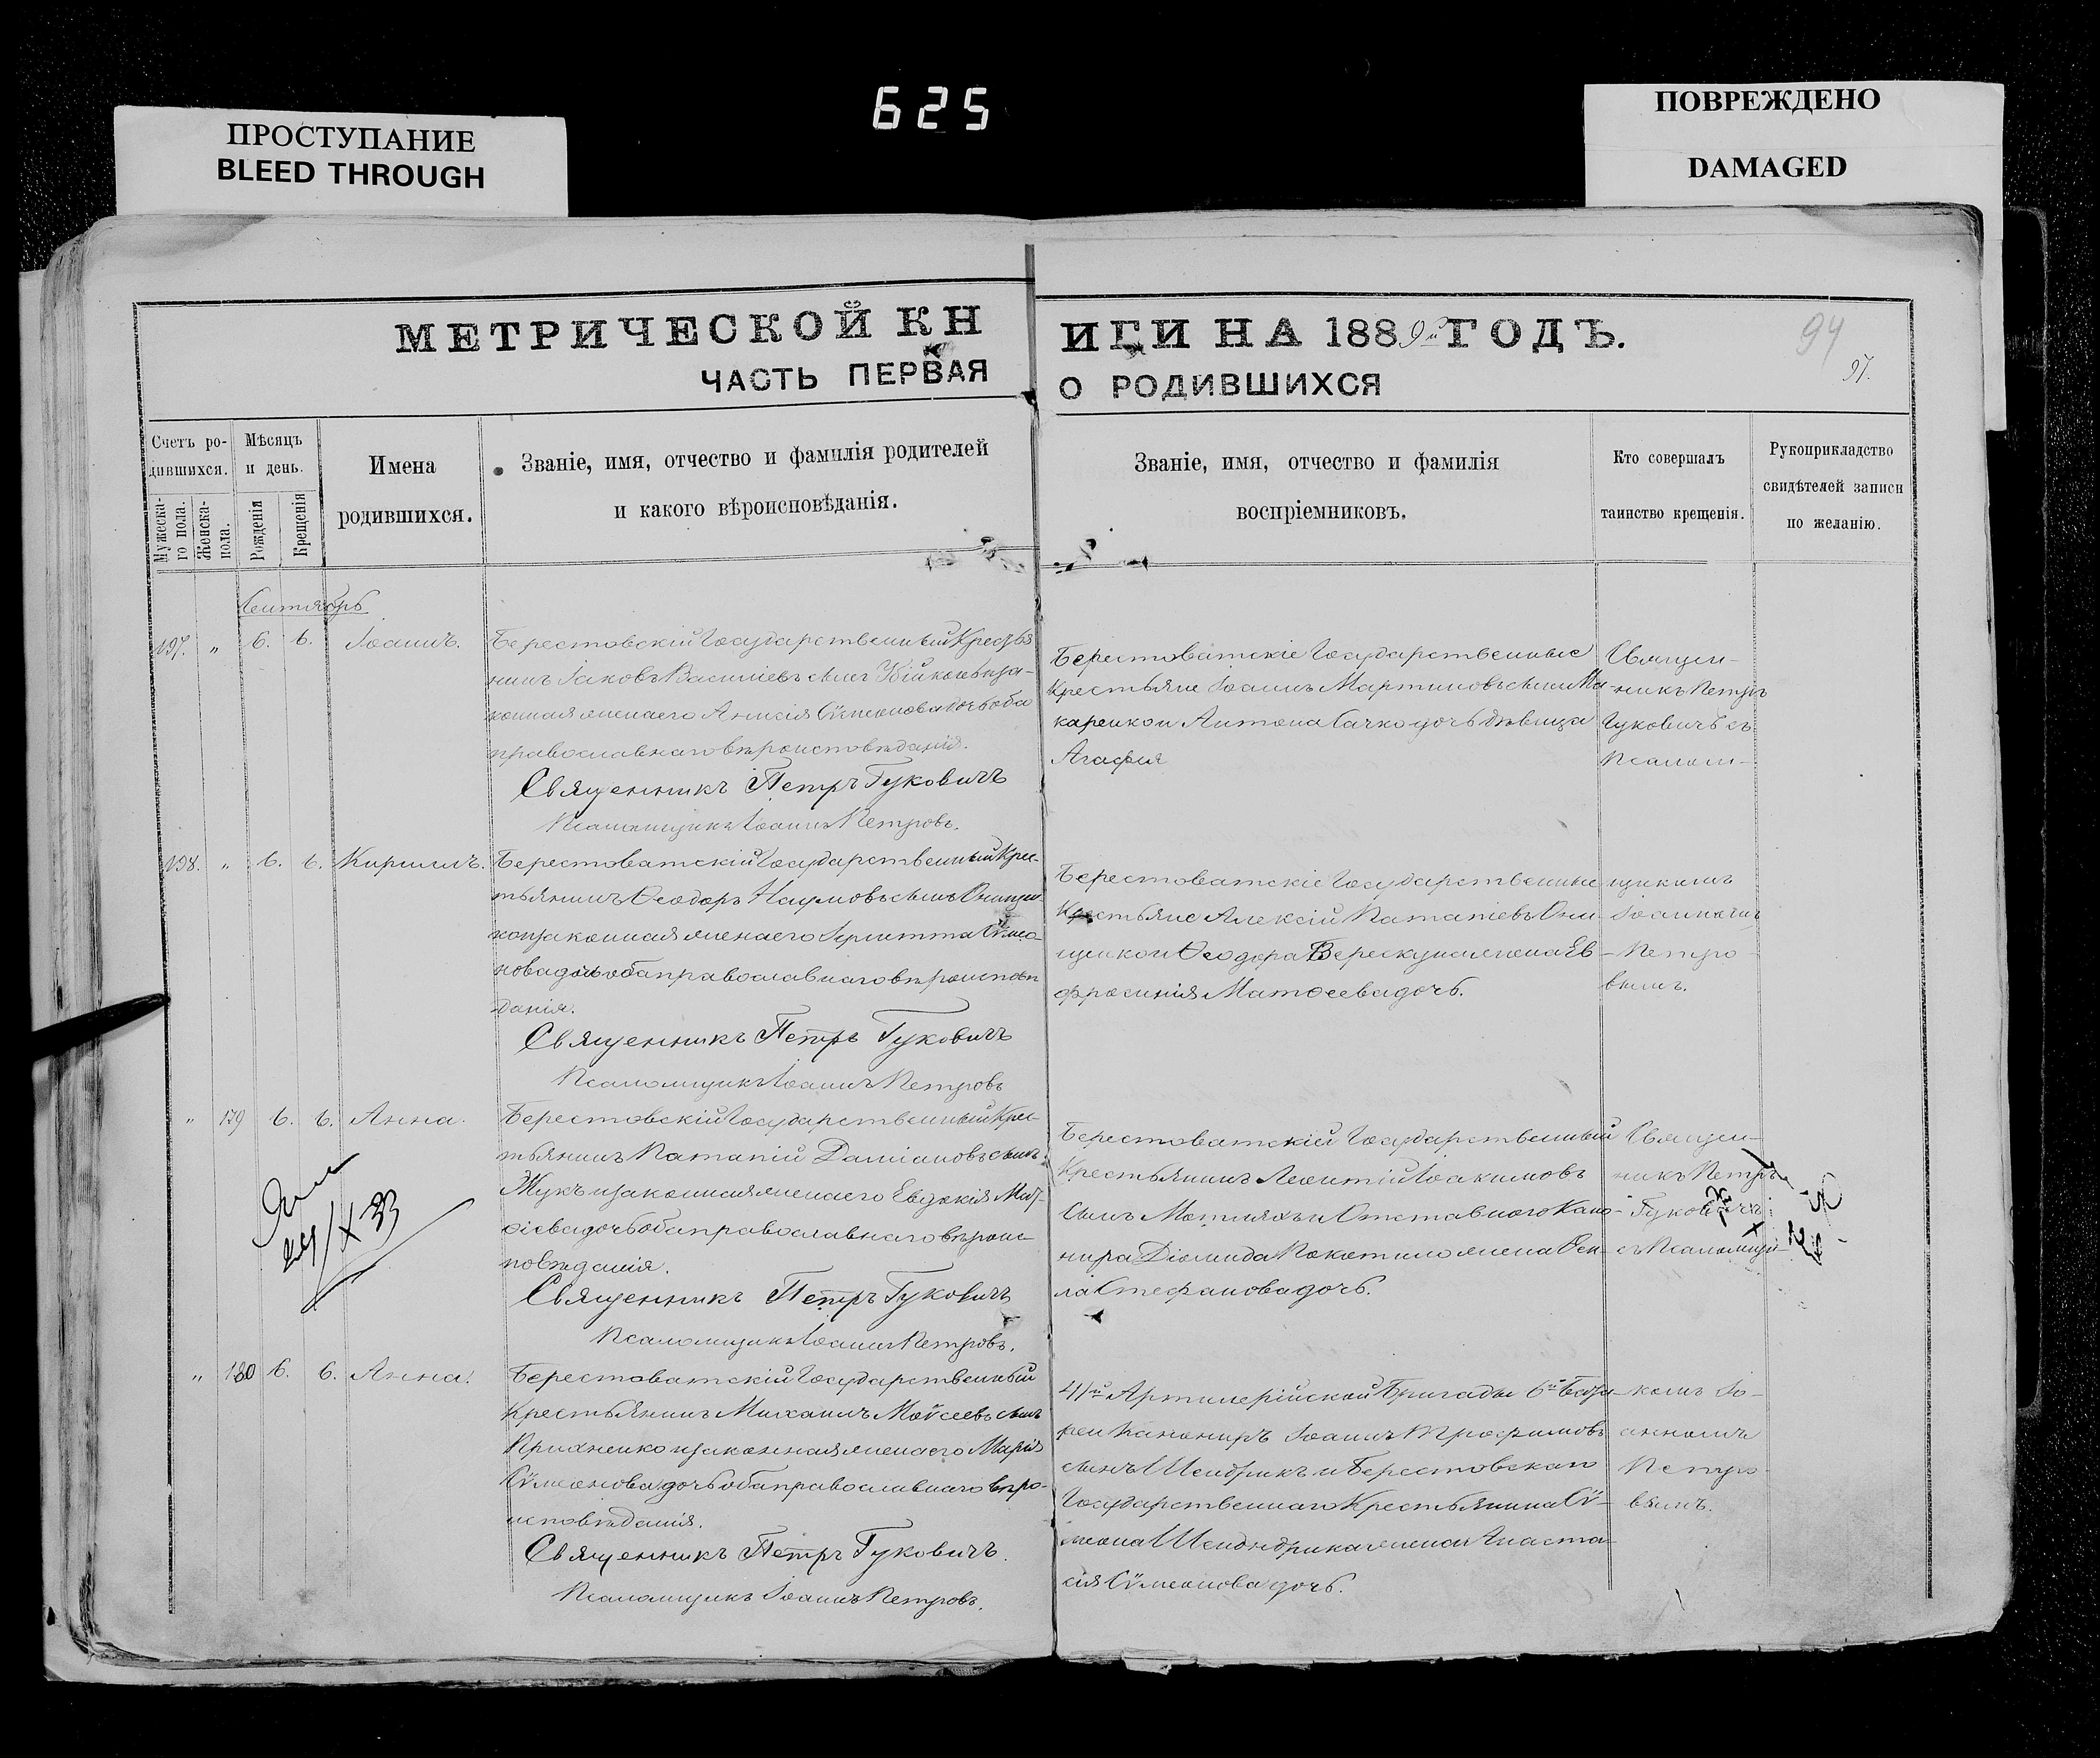 ПРОСТУПАНИЕ
BLEED THROUGH
625
ПОВРЕЖДЕНО
DAMAGED
МЕТРИЧЕСКОЙ КНИГИ НА 1889й ГОДЪ.
94
97.
ЧАСТЬ ПЕРВАЯ О РОДИВШИХСЯ
Счетъ ро-
дившихся.
Мужеска-
го пола.
Женска-
пола.
Мѣсяцъ
и день.
Рожденія
Крещенія
Имена
родившихся.
Званіе, имя, отчество и фамилія родителей
и какого вѣроисповѣданія.
Званіе, имя, отчество и фамилія
воспріемниковъ.
Кто совершалъ
таинство крещенія.
Рукоприкладство
свидѣтелей записи
по желанію.
Сентябрь
197. " 6. 6. Іоаннъ.
Берестовскій Государственный Крестья
нинъ Іаковъ Василіевъ сынъ и за-
конная жена его Анисія Сѵмеонова дочь оба
православнаго вѣроисповѣданія.
Священникъ Петръ Гуковичъ
Псаломщикъ Іоаннъ Петровъ.
Берестоватскіе Государственные
Крестьяне Іоаннъ Мартиновъ сынъ Ма-
каренко и Антона Сачко дочь дѣвица
Агафія
Священ-
никъ Петръ
Гуковичъ съ
Псалом-
198. " 6. 6. Кириллъ.
Берестоватскій Государственный Крес-
тьянинъ Ѳеодоръ Наумовъ сынъ Онищен
ко и законная жена его Сѵмео-
нова дочь оба православнаго вѣроисповѣ
данія.
Священникъ Петръ Гуковичъ
Псаломщикъ Іоаннъ Петровъ
Берестоватскіе Государственные
Крестьяне Алексій Патапіевъ Они-
щенко и Ѳеодора Верескуна жена Ев-
фросинія Матѳеева дочь.
щикомъ
Іоанномъ
Петро-
вымъ.
" 179 6. 6. Анна.
Берестовскій Государственный Крес-
тьянинъ Патапій Даміановъ сынъ
Жукъ и законная жена его Евдокія
дочь оба православнаго вѣроис-
повѣданія.
Священникъ Петръ Гуковичъ
Псаломщикъ Іоаннъ Петровъ.
Берестоватскій Государственный
Крестьянинъ Леонтій Іоакимовъ
сынъ и Отставного Кано-
нира Діомида Покотило жена Ѳек-
ла Стефанова дочь.
Священ-
никъ Петръ
Гуковичъ
съ Псаломщи-
" 180 6. 6. Анна.
Берестоватскій Государственный
Крестьянинъ Михаилъ Моѵсеевъ сынъ
Прихненко и законная жена его Марія
Сѵмеонова дочь оба православнаго вѣро-
исповѣданія.
Священникъ Петръ Гуковичъ.
Псаломщикъ Іоаннъ Петровъ.
41й Артилерійской Бригады 6й Бата-
реи Канониръ Іоаннъ Трофимовъ
сынъ Шендрикъ и Берестовскаго
Государственнаго Крестьянина Сѵ-
меона Шендрика жена Анаста-
сія Сѵмеонова дочь.
комъ Іо-
анномъ
Петро-
вымъ.